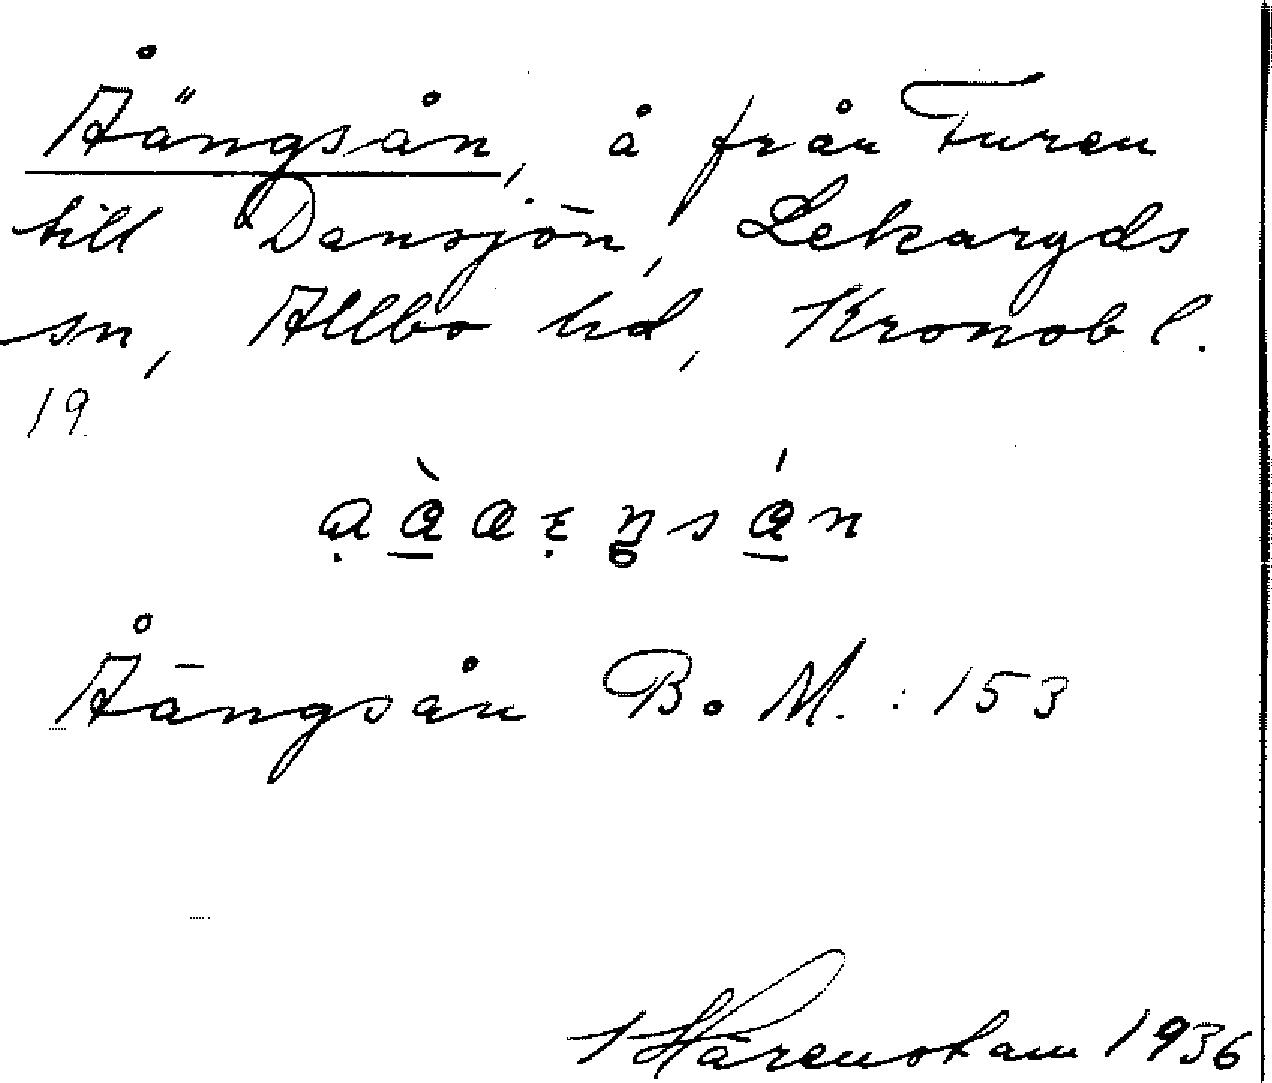 Åängsån, å från Furen
till Dansjön, Lekaryds
sn, Allbo hd, Kronob l.
19
Åängsån B. M. : 153
Härenstam 1936